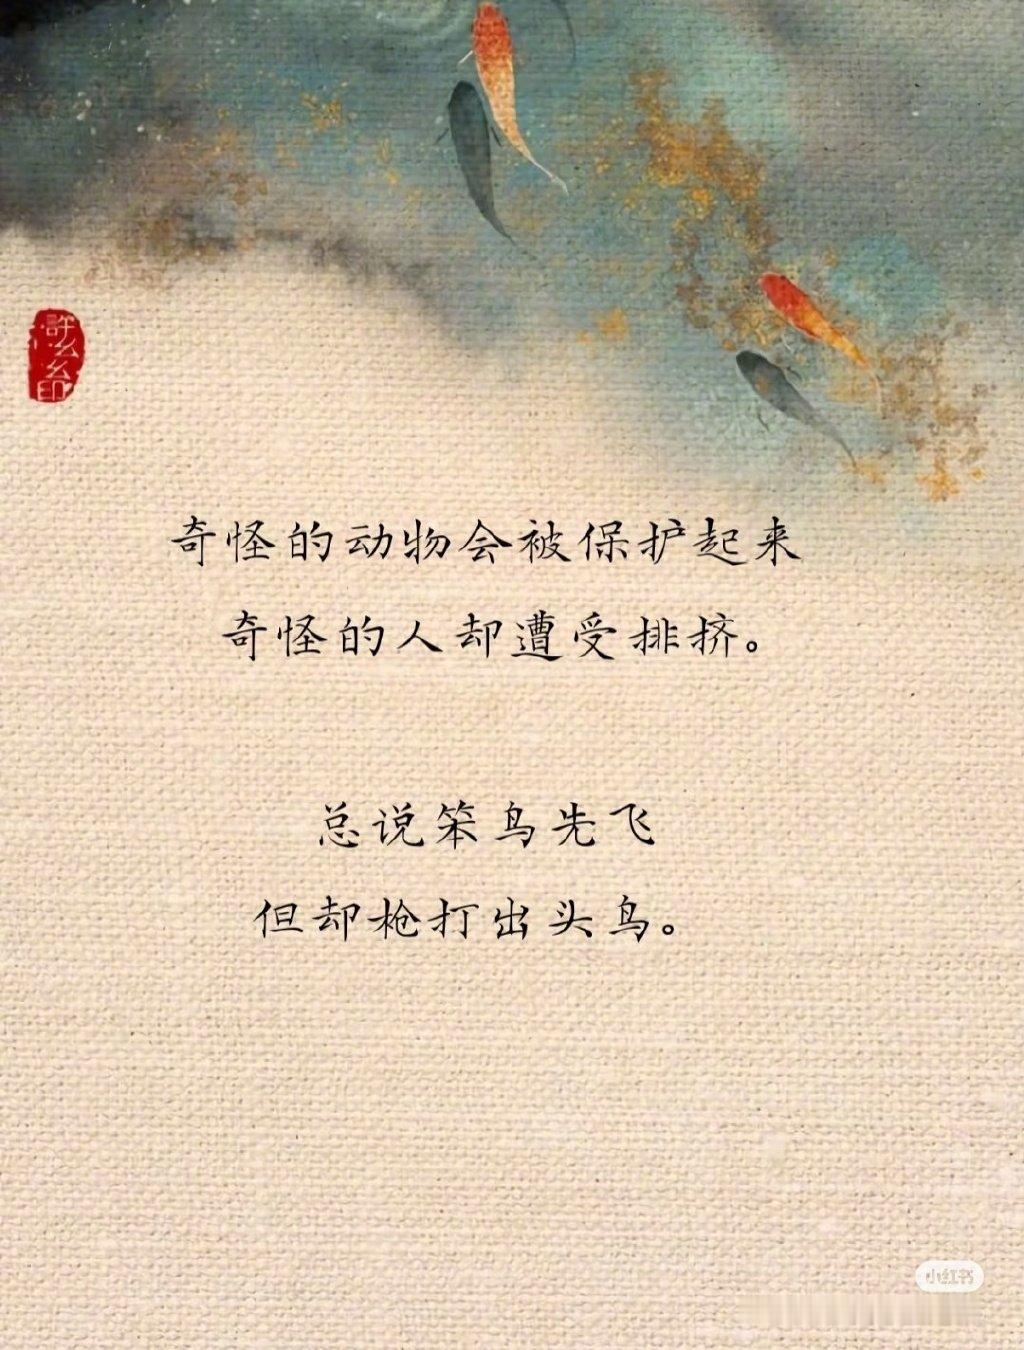 奇怪的动物会被保护起来
奇怪的人却遭受排挤。
总说笨鸟先飞
但却枪打出头鸟。
小红书